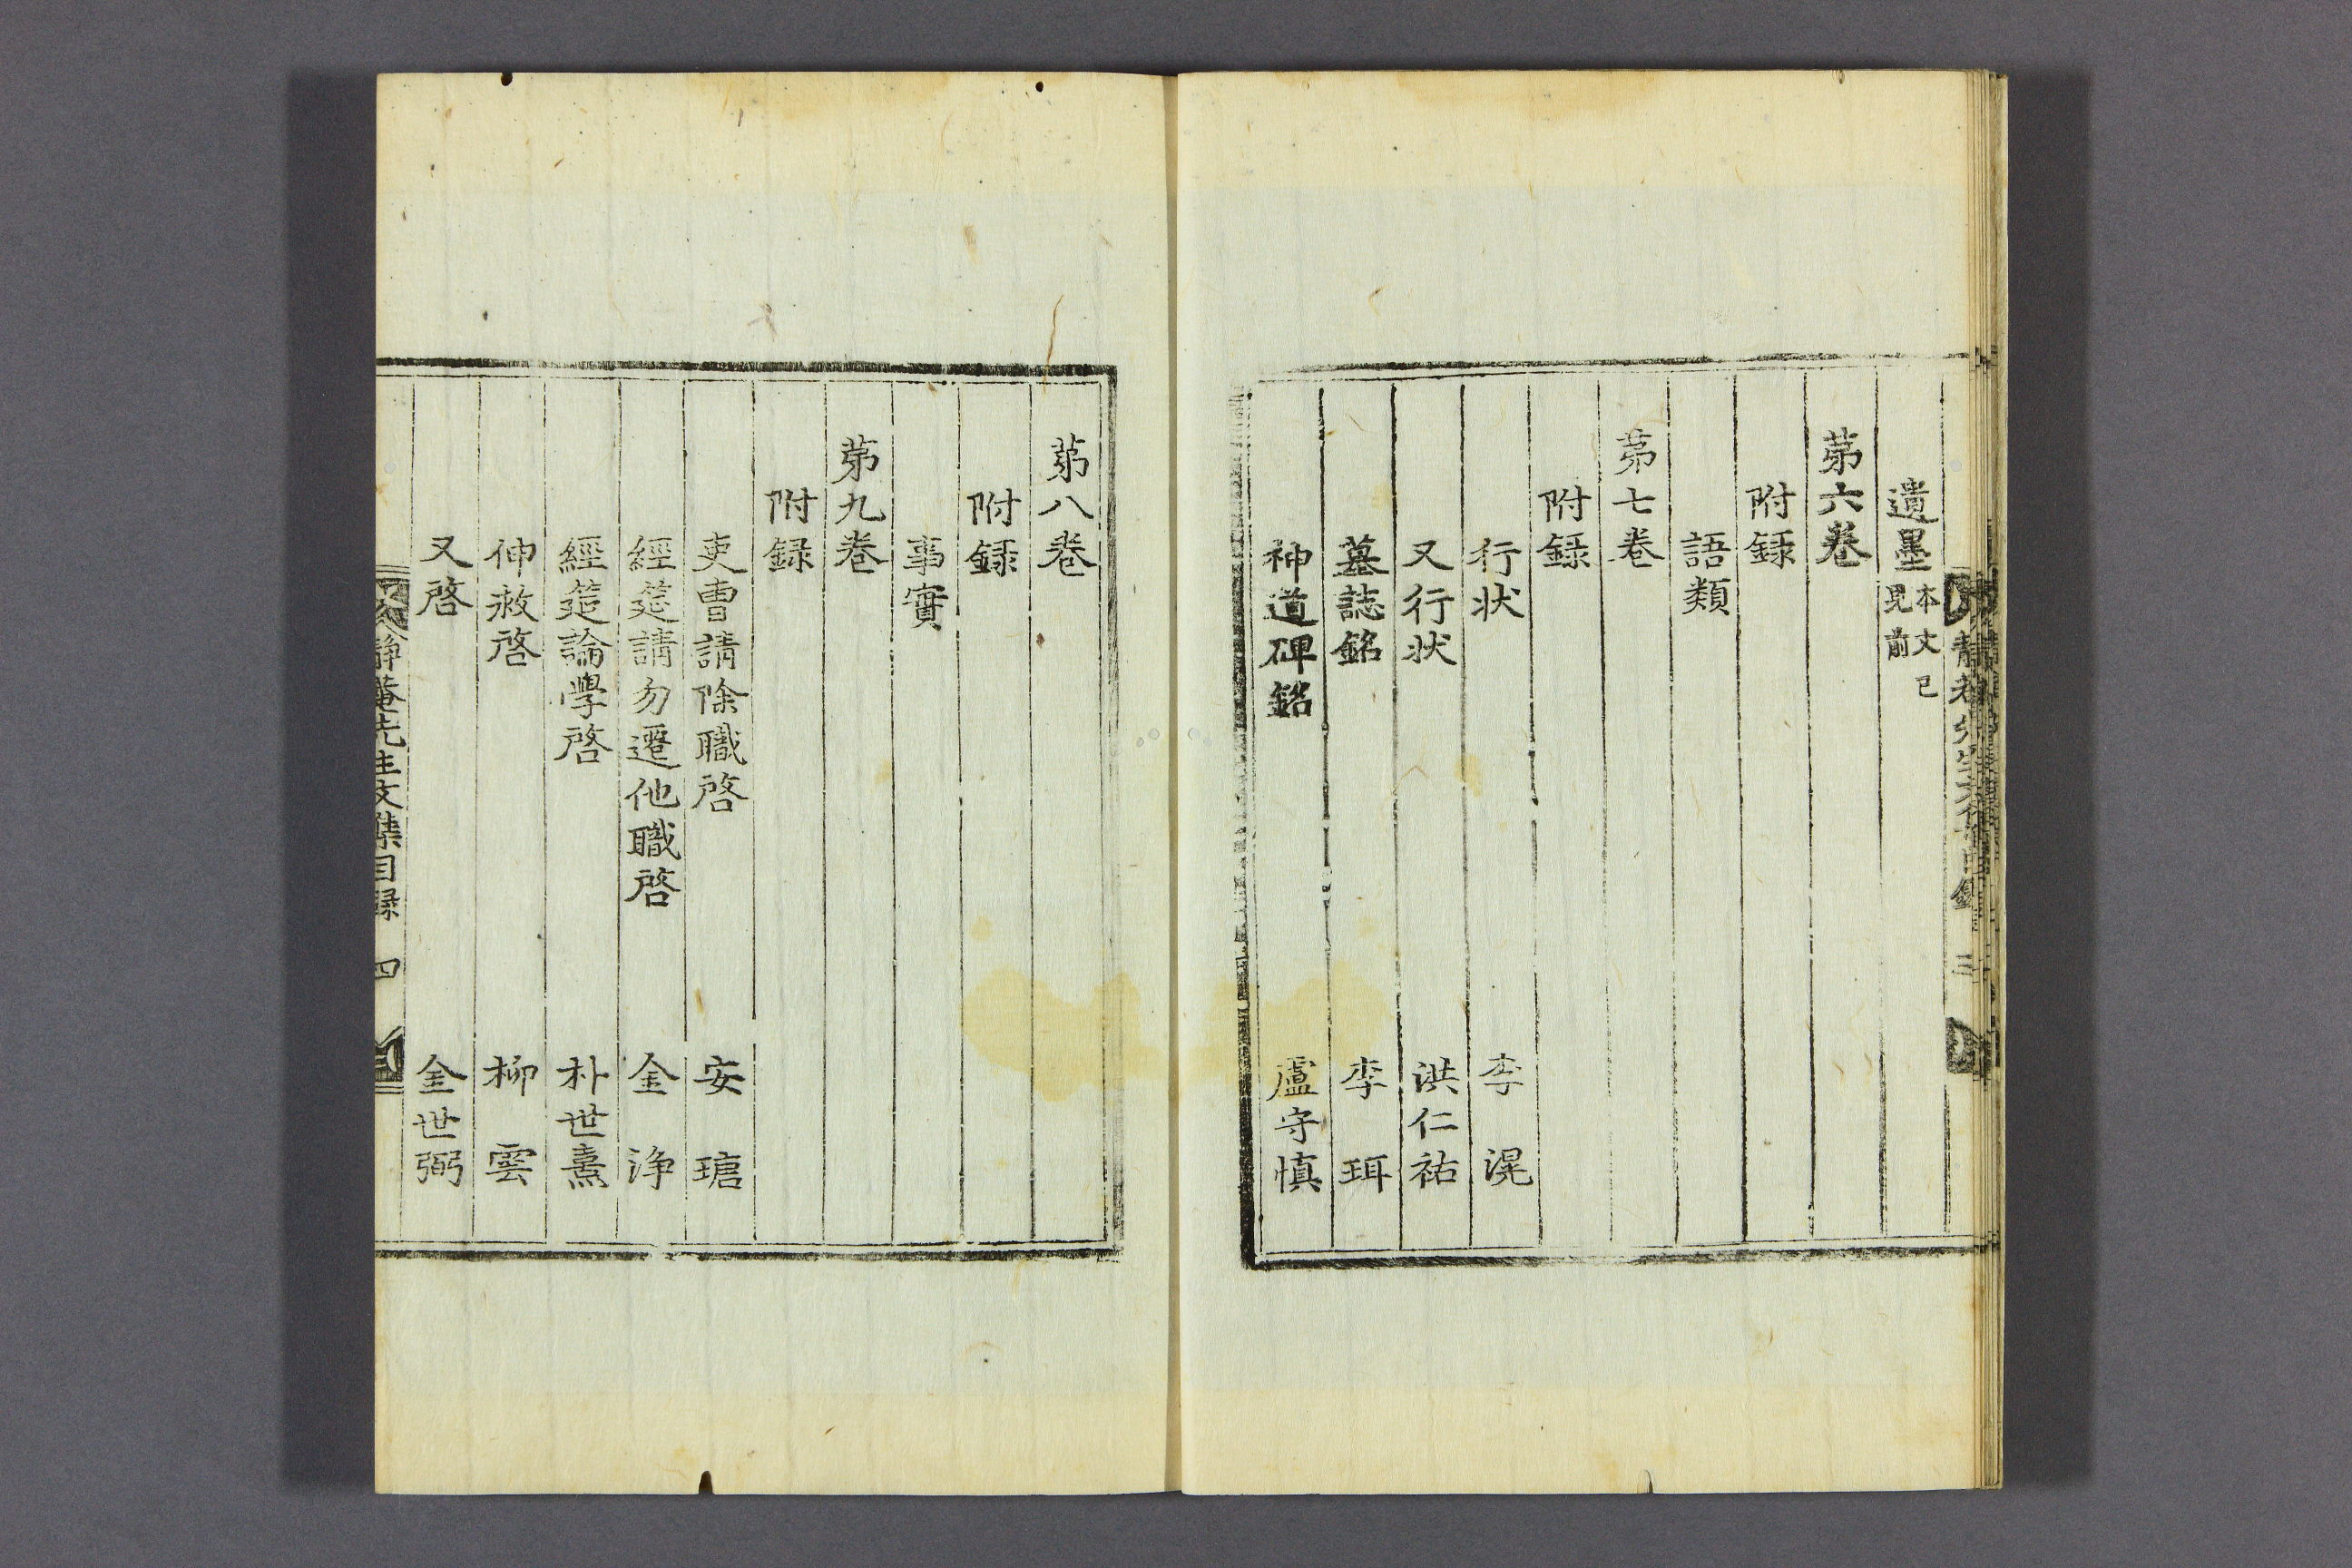 遺墨 本文已見前
第六卷
附録
語類
第七卷
附録
行状 李滉
又行状 洪仁祐
墓誌銘 李珥
神道碑銘 盧守慎
第八卷
附録
事實
第九卷
附録
吏曹請除職啓 安瑭
經筵請勿遷他職啓 金淨
經筵論學啓 朴世熹
伸救啓 柳雲
又啓 金世弼
靜菴先生文集目録 四